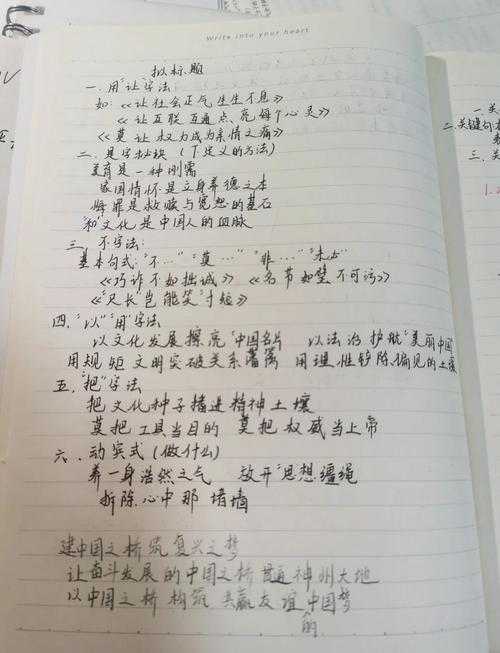 Write into your heart
拟标题
一、用"让"字法
如《让社会正气生生不息》
《让互联互通点亮每个心灵》
《莫让权力成为亲情之痛》
二、是字秘诀（下定义的方法）
美育是一种刚需
家国情怀是立身养德之本
悔罪是救赎与宽恕的基石
"和"文化是中国人的血脉
三、不字法:
基本句式:"不…""莫…""非…""未必"
《巧诈不如拙诚》《名节如璧不可污》
《"尺长"岂能笑"寸短"》
四、"以""用"字法
以文化发展擦亮"中国名片 以法治护航"美丽中国
用规矩文明突破关系藩篱 用理性铲除偏见的土壤
五、"把"字法
把文化种子播进精神土壤
莫把工具当目的 莫把权威当上帝
六、动宾式（做什么）
养一身浩然之气 放开"思想缰绳
拆除心中那堵墙
建中国之桥筑复兴之梦
让奋斗发展的中国之桥贯通神州大地
以中国之桥构筑共赢友谊中国梦
的
一关
二.关键句
三、
1.